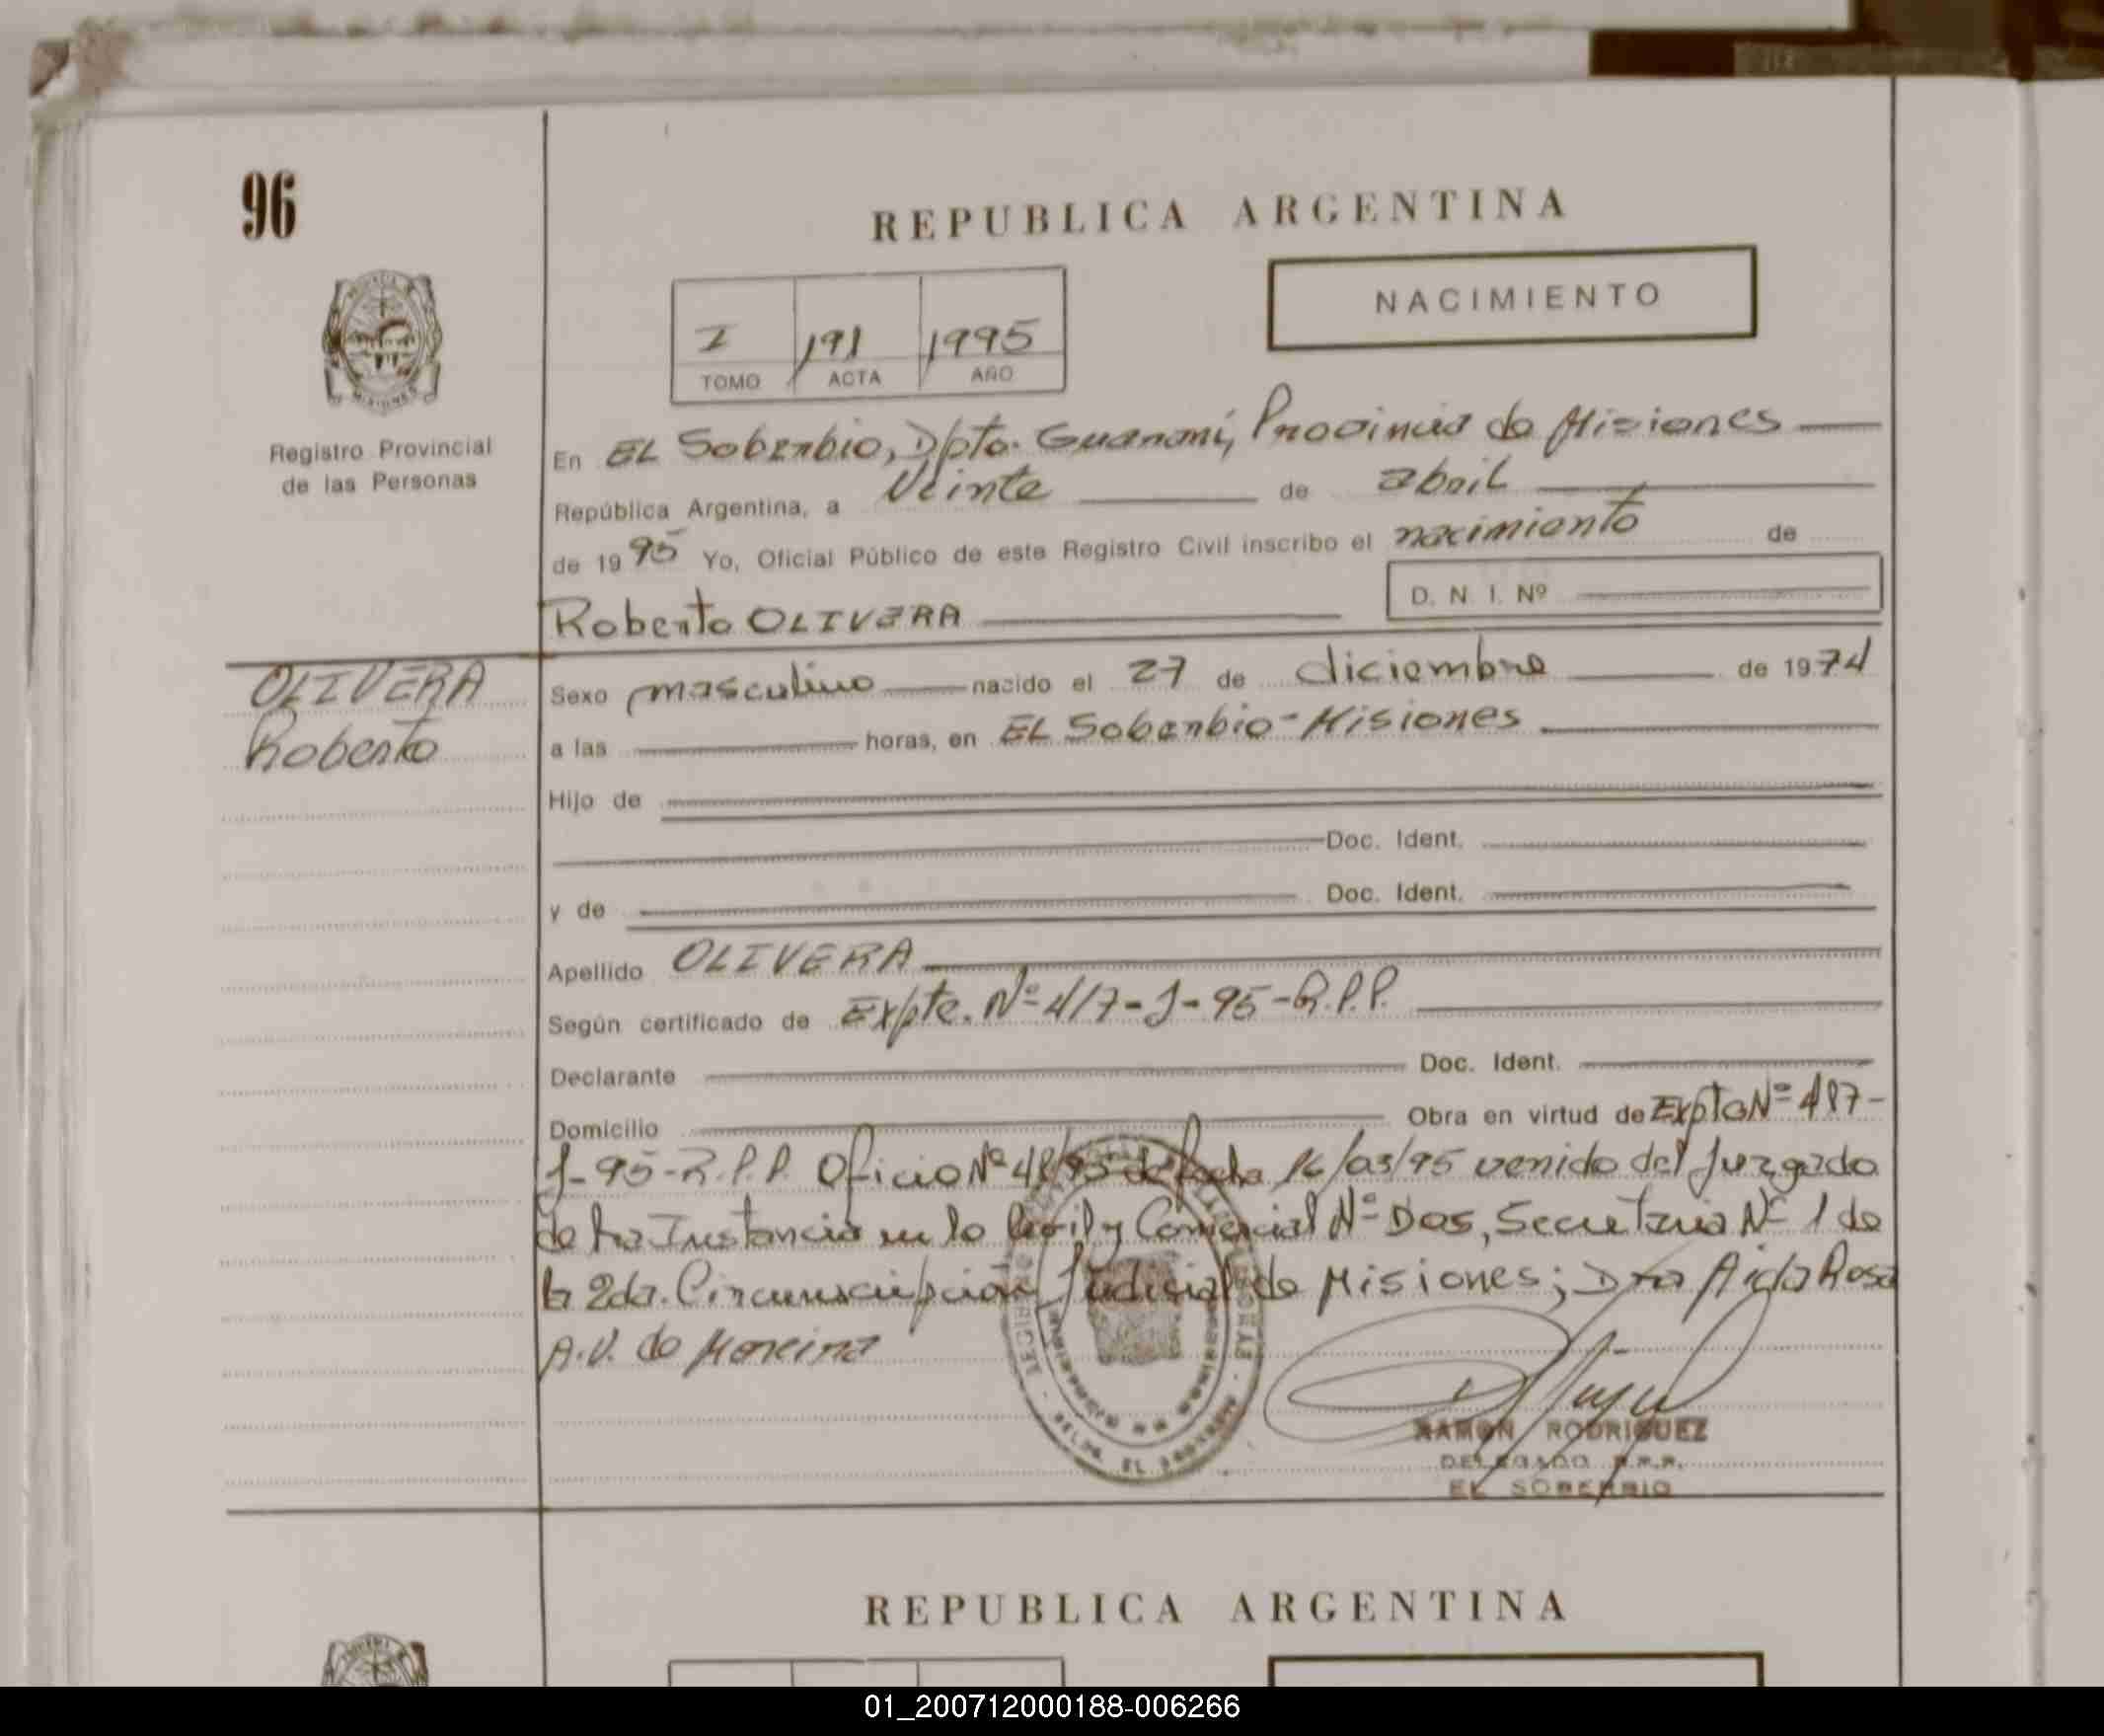 96
REPUBLICA ARGENTINA
NACIMIENTO
I 191 1995
TOMO ACTA AÑO
Registro Provincial
de las Personas
En EL Soberbio, Dpto. Guaraní, Provincia de Misiones
República Argentina, a Veinte de abril
de 1995 Yo, Oficial Público de este Registro Civil inscribo el nacimiento de
D. N. I. Nº
Roberto OLIVERA
OLIVERA
Roberto
Sexo masculino nacido el 27 de diciembre de 1974
a las horas, en EL Soberbio-Misiones
Hijo de
Doc. Ident.
y de Doc. Ident.
Apellido OLIVERA
Según certificado de Expte. Nº 417-J-95-R.P.P.
Declarante Doc. Ident.
Domicilio Obra en virtud de Expte Nº 487-
J-95-R.P.P. Oficio Nº de fecha 16/03/95 venido del Juzgado
de 1ra Instancia en lo Civil y Comercial Nº Dos, Secretaria Nº 1 de
la 2da. Circunscripción Judicial de Misiones; Dra Aida Rosa
A.V. de Moreira
RAMON RODRIGUEZ
DELEGADO R.P.P.
EL SOBERBIO
REPUBLICA ARGENTINA
01_200712000188-006266